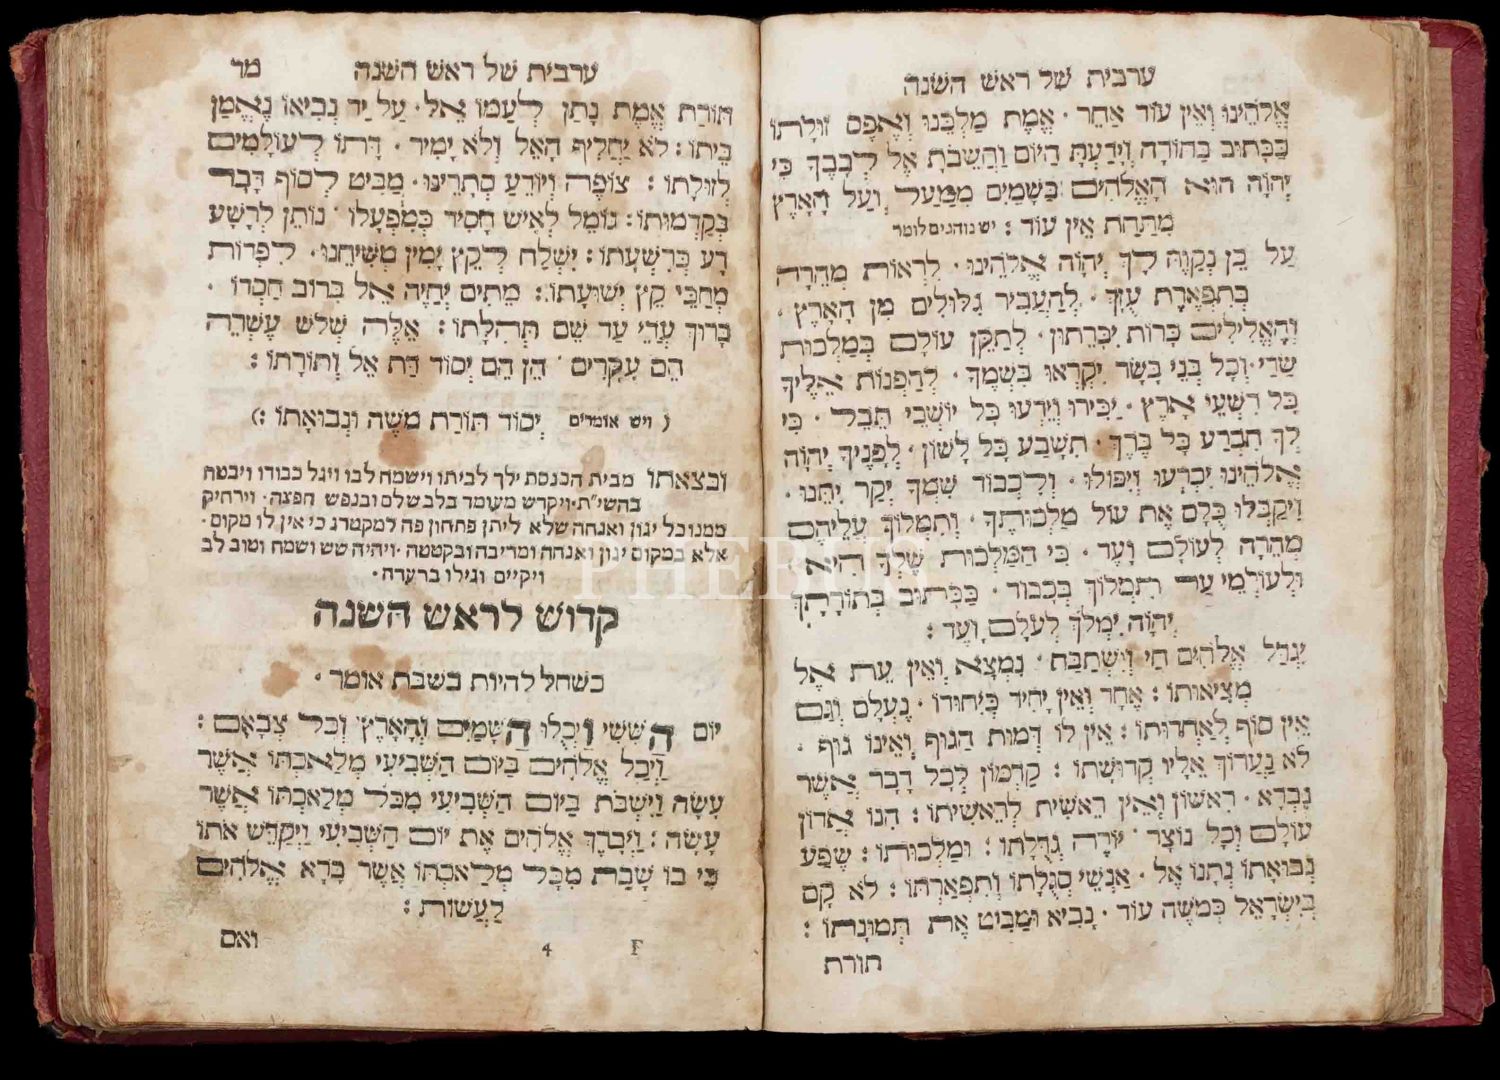 ערבית של ראש השנה
אֱלֹהֵינוּ וְאֵין עוֹד אַחֵר · אֱמֶת מַלְכֵּנוּ וְאֶפֶס זוּלָתוֹ
כַּכָּתוּב בַּתּוֹרָה וְיָדַעְתָּ הַיּוֹם וַהֲשֵׁבֹתָ אֶל לְבָבֶךָ כִּי
יְהֹוָה הוּא הָאֱלֹהִים בַּשָּׁמַיִם מִמַּעַל וְעַל הָאָרֶץ
מִתַּחַת אֵין עוֹד : יש נוהגים לומר
עַל כֵּן נְקַוֶּה לְךָ יְהֹוָה אֱלֹהֵינוּ · לִרְאוֹת מְהֵרָה
בְּתִפְאֶרֶת עֻזֶּךָ · לְהַעֲבִיר גִּלּוּלִים מִן הָאָרֶץ ·
וְהָאֱלִילִים כָּרוֹת יִכָּרֵתוּן · לְתַקֵּן עוֹלָם בְּמַלְכוּת
שַׁדַּי · וְכָל בְּנֵי בָשָׂר יִקְרְאוּ בִשְׁמֶךָ · לְהַפְנוֹת אֵלֶיךָ
כָּל רִשְׁעֵי אָרֶץ · יַכִּירוּ וְיֵדְעוּ כָּל יוֹשְׁבֵי תֵבֵל · כִּי
לְךָ תִכְרַע כָּל בֶּרֶךְ · תִּשָּׁבַע כָּל לָשׁוֹן · לְפָנֶיךָ יְהֹוָה
אֱלֹהֵינוּ יִכְרְעוּ וְיִפּוֹלוּ · וְלִכְבוֹד שִׁמְךָ יְקָר יִתֵּנוּ ·
וִיקַבְּלוּ כֻלָּם אֶת עוֹל מַלְכוּתֶךָ · וְתִמְלוֹךְ עֲלֵיהֶם
מְהֵרָה לְעוֹלָם וָעֶד · כִּי הַמַּלְכוּת שֶׁלְּךָ הִיא ·
וּלְעוֹלְמֵי עַד תִּמְלוֹךְ בְּכָבוֹד · כַּכָּתוּב בְּתוֹרָתֶךָ
יְהֹוָה יִמְלֹךְ לְעֹלָם וָעֶד :
יִגְדַּל אֱלֹהִים חַי וְיִשְׁתַּבַּח · נִמְצָא וְאֵין עֵת אֶל
מְצִיאוּתוֹ : אֶחָד וְאֵין יָחִיד כְּיִחוּדוֹ · נֶעְלָם וְגַם
אֵין סוֹף לְאַחְדוּתוֹ : אֵין לוֹ דְּמוּת הַגּוּף וְאֵינוֹ גוּף ·
לֹא נַעֲרוֹךְ אֵלָיו קְדוּשָּׁתוֹ : קַדְמוֹן לְכָל דָּבָר אֲשֶׁר
נִבְרָא · רִאשׁוֹן וְאֵין רֵאשִׁית לְרֵאשִׁיתוֹ : הִנּוֹ אֲדוֹן
עוֹלָם וְכָל נוֹצָר · יוֹרֶה גְּדֻלָּתוֹ : וּמַלְכוּתוֹ : שֶׁפַע
נְבוּאָתוֹ נְתָנוֹ אֶל · אַנְשֵׁי סְגֻלָּתוֹ וְתִפְאַרְתּוֹ : לֹא קָם
בְּיִשְׂרָאֵל כְּמֹשֶׁה עוֹד · נָבִיא וּמַבִּיט אֶת תְּמוּנָתוֹ :
תורת
ערבית של ראש השנה מד
תּוֹרַת אֱמֶת נָתַן לְעַמּוֹ אֵל · עַל יַד נְבִיאוֹ נֶאֱמַן
בֵּיתוֹ : לֹא יַחֲלִיף הָאֵל וְלֹא יָמִיר · דָּתוֹ לְעוֹלָמִים
לְזוּלָתוֹ : צוֹפֶה וְיוֹדֵעַ סְתָרֵינוּ · מַבִּיט לְסוֹף דָּבָר
בְּקַדְמוּתוֹ : גּוֹמֵל לְאִישׁ חָסִיד כְּמִפְעָלוֹ · נוֹתֵן לְרָשָׁע
רָע כְּרִשְׁעָתוֹ : יִשְׁלַח לְקֵץ יָמִין מְשִׁיחֵנוּ · לִפְדּוֹת
מְחַכֵּי קֵץ יְשׁוּעָתוֹ : מֵתִים יְחַיֶּה אֵל בְּרוֹב חַסְדּוֹ ·
בָּרוּךְ עֲדֵי עַד שֵׁם תְּהִלָּתוֹ : אֵלֶּה שְׁלֹשׁ עֶשְׂרֵה
הֵם עִקָּרִים · הֵן הֵם יְסוֹד דַּת אֵל וְתוֹרָתוֹ :
( ויש אומרים יְסוֹד תּוֹרַת מֹשֶׁה וּנְבוּאָתוֹ :)
ובצאתו מבית הכנסת ילך לביתו וישמח לבו ויגל כבודו ויבטח
בהשי"ת · ויקדש מעומד בלב שלם ובנפש חפצה · וירחיק
ממנו כל יגון ואנחה שלא ליתן פתחון פה למקטרג כי אין לו מקום ·
אלא במקום יגון ואנחה ומריבה ובקטטה · ויהיה שש ושמח וטוב לב
ויקיים וגילו ברעדה ·
קדוש לראש השנה
כשחל להיות בשבת אומר ·
יוֹם הַשִּׁשִּׁי וַיְכֻלּוּ הַשָּׁמַיִם וְהָאָרֶץ וְכָל צְבָאָם :
וַיְכַל אֱלֹהִים בַּיּוֹם הַשְּׁבִיעִי מְלַאכְתּוֹ אֲשֶׁר
עָשָׂה וַיִּשְׁבֹּת בַּיּוֹם הַשְּׁבִיעִי מִכָּל מְלַאכְתּוֹ אֲשֶׁר
עָשָׂה : וַיְבָרֶךְ אֱלֹהִים אֶת יוֹם הַשְּׁבִיעִי וַיְקַדֵּשׁ אֹתוֹ
כִּי בוֹ שָׁבַת מִכָּל מְלַאכְתּוֹ אֲשֶׁר בָּרָא אֱלֹהִים
לַעֲשׂוֹת :
F 4 ואם
PHEBUS